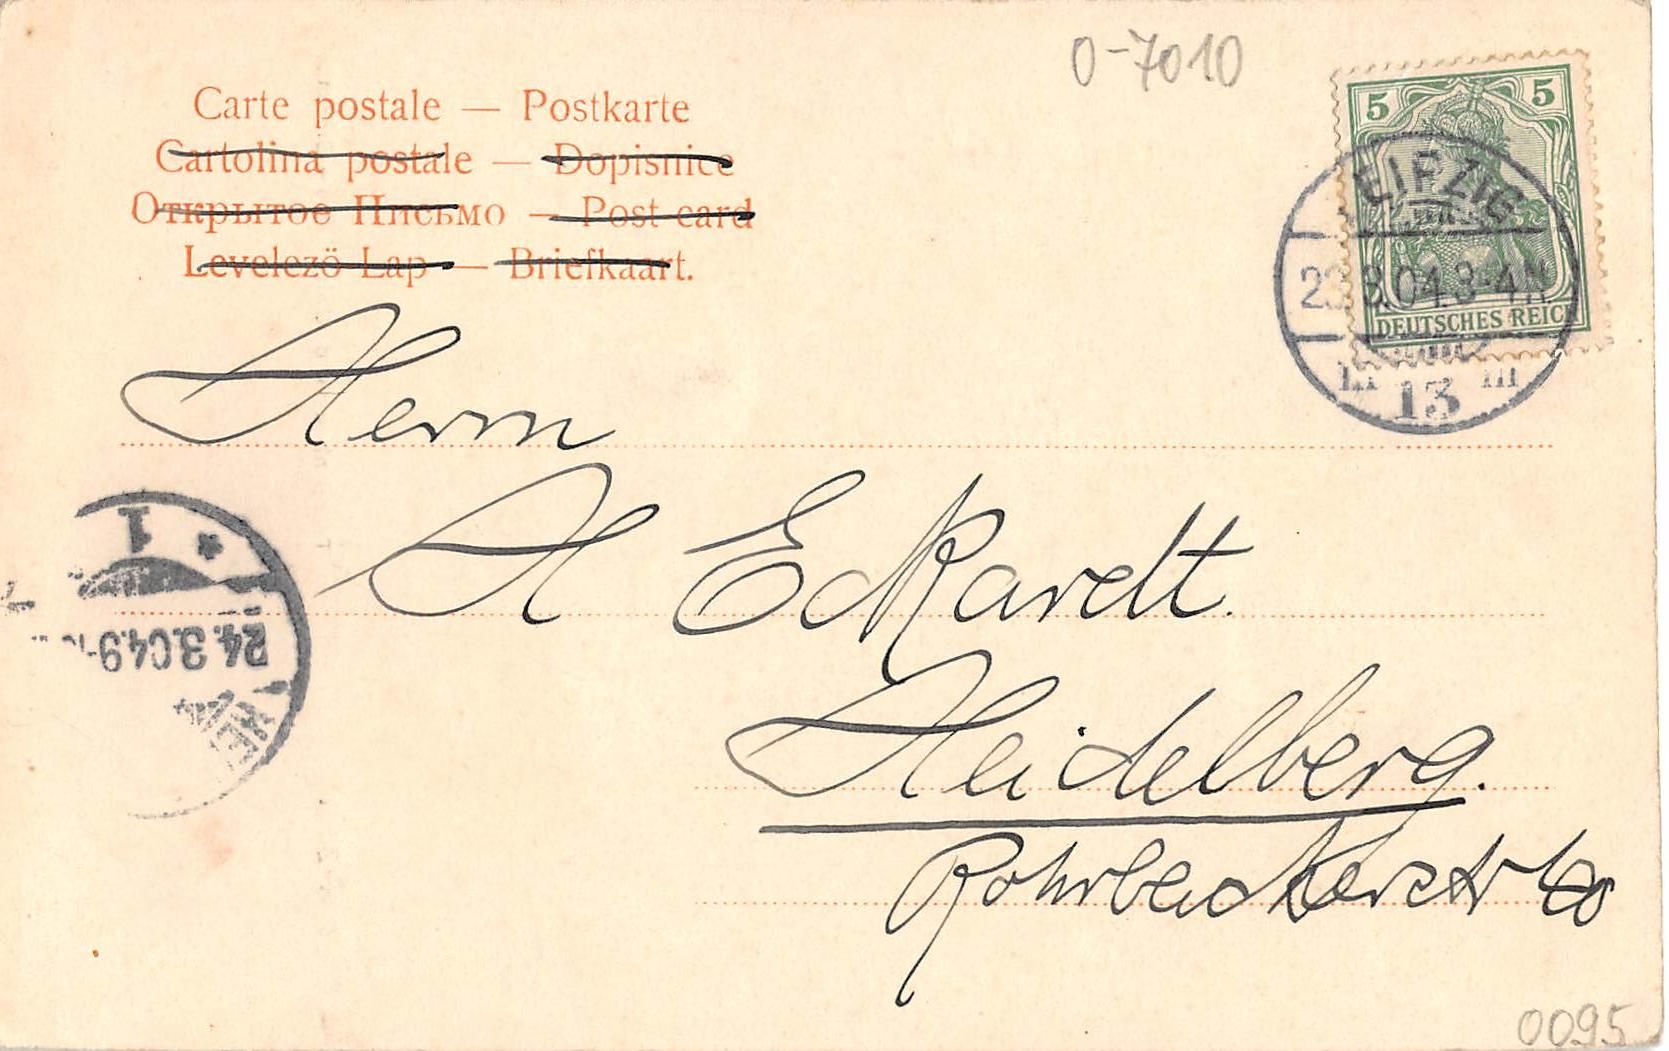 0-7010
Carte postale — Postkarte
Cartolina postale — Dopisnice
Открытое Письмо — Post card
Levelezö Lap — Briefkaart.
5 5
DEUTSCHES REICH
LEIPZIG
3.04.3-4N
13
Herrn
H Eckardt.
Heidelberg.
1
24.3.04.9-
0095